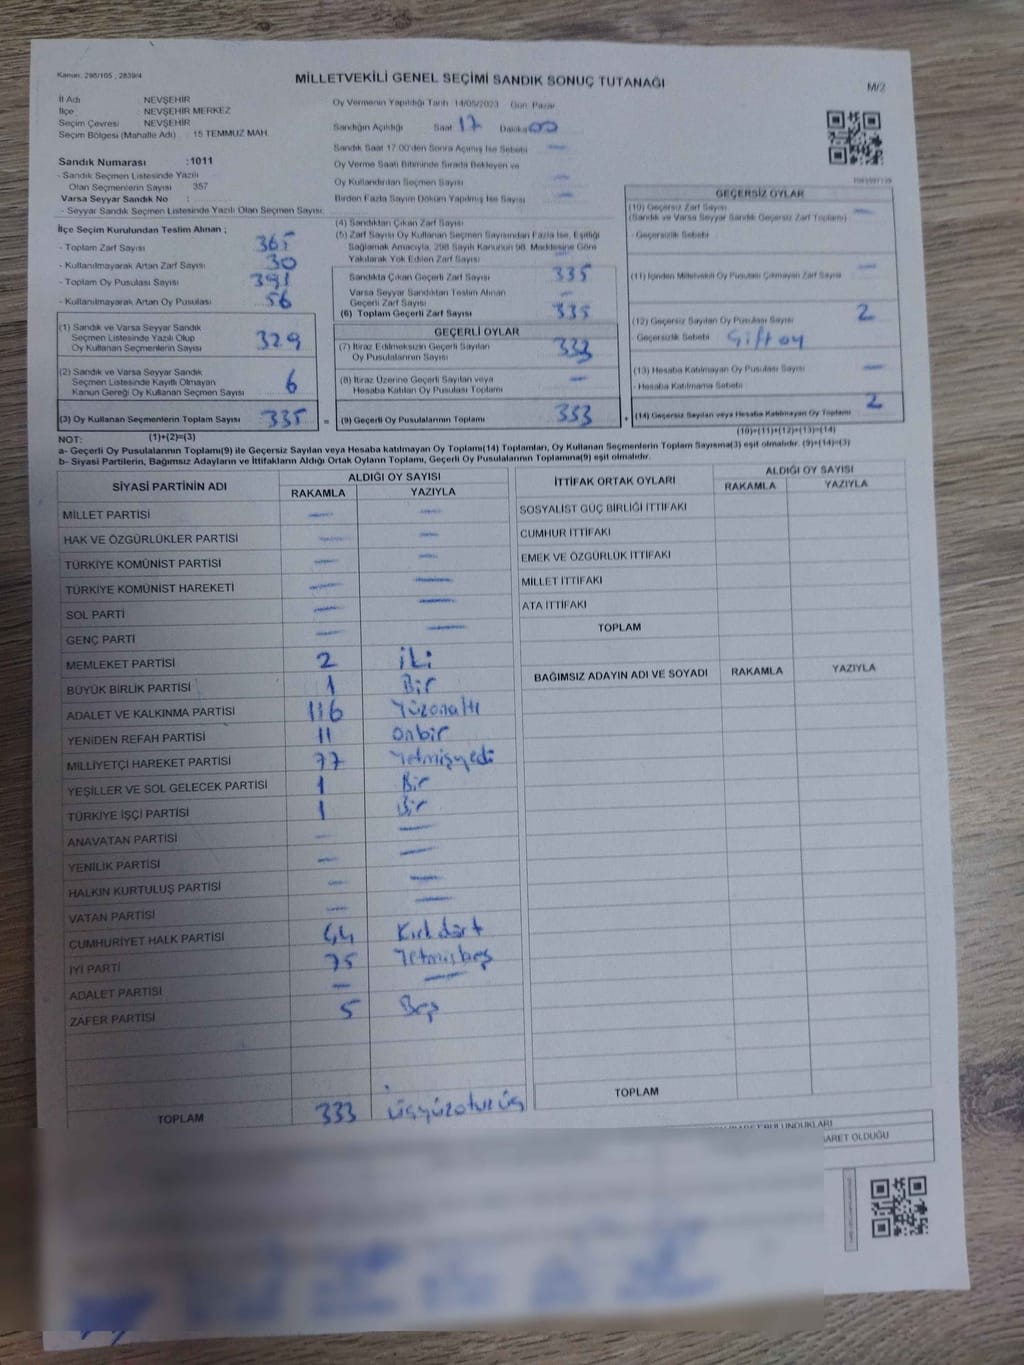 Kanun: 298/105 , 2839/4
MİLLETVEKİLİ GENEL SEÇİMİ SANDIK SONUÇ TUTANAĞI
M/2
İl Adı NEVŞEHİR
İlçe NEVŞEHİR MERKEZ
Seçim Çevresi NEVŞEHİR
Seçim Bölgesi (Mahalle Adı) : 15 TEMMUZ MAH.
Oy Vermenin Yapıldığı Tarih 14/05/2023 Gün: Pazar
Sandığın Açıldığı Saat 17 Dakika 00
Sandık Saat 17.00'den Sonra Açılmış İse Sebebi —
Oy Verme Saati Bitiminde Sırada Bekleyen ve
Oy Kullandırılan Seçmen Sayısı —
Birden Fazla Sayım Döküm Yapılmış İse Sayısı —
Sandık Numarası :1011
- Sandık Seçmen Listesinde Yazılı
Olan Seçmenlerin Sayısı 357
Varsa Seyyar Sandık No :
- Seyyar Sandık Seçmen Listesinde Yazılı Olan Seçmen Sayısı
İlçe Seçim Kurulundan Teslim Alınan ;
- Toplam Zarf Sayısı 365
- Kullanılmayarak Artan Zarf Sayısı 30
- Toplam Oy Pusulası Sayısı 391
- Kullanılmayarak Artan Oy Pusulası 56
(1) Sandık ve Varsa Seyyar Sandık
Seçmen Listesinde Yazılı Olup
Oy Kullanan Seçmenlerin Sayısı 329
(2) Sandık ve Varsa Seyyar Sandık
Seçmen Listesinde Kayıtlı Olmayan
Kanun Gereği Oy Kullanan Seçmen Sayısı 6
(3) Oy Kullanan Seçmenlerin Toplam Sayısı 335 =
(1)+(2)=(3)
(4) Sandıktan Çıkan Zarf Sayısı
(5) Zarf Sayısı Oy Kullanan Seçmen Sayısından Fazla İse, Eşitliği
Sağlamak Amacıyla, 298 Sayılı Kanunun 98. Maddesine Göre
Yakılarak Yok Edilen Zarf Sayısı —
Sandıkta Çıkan Geçerli Zarf Sayısı 335
Varsa Seyyar Sandıktan Teslim Alınan
Geçerli Zarf Sayısı —
(6) Toplam Geçerli Zarf Sayısı 335
GEÇERLİ OYLAR
(7) İtiraz Edilmeksizin Geçerli Sayılan
Oy Pusulalarının Sayısı 333
(8) İtiraz Üzerine Geçerli Sayılan veya
Hesaba Katılan Oy Pusulası Toplamı —
(9) Geçerli Oy Pusulalarının Toplamı 333 +
GEÇERSİZ OYLAR
(10) Geçersiz Zarf Sayısı —
(Sandık ve Varsa Seyyar Sandık Geçersiz Zarf Toplamı)
- Geçersizlik Sebebi
(11) İçinden Milletvekili Oy Pusulası Çıkmayan Zarf Sayısı —
(12) Geçersiz Sayılan Oy Pusulası Sayısı 2
- Geçersizlik Sebebi Çift oy
(13) Hesaba Katılmayan Oy Pusulası Sayısı —
- Hesaba Katılmama Sebebi
(14) Geçersiz Sayılan veya Hesaba Katılmayan Oy Toplamı 2
(10)+(11)+(12)+(13)=(14)
NOT:
a- Geçerli Oy Pusulalarının Toplamı(9) ile Geçersiz Sayılan veya Hesaba katılmayan Oy Toplamı(14) Toplamları, Oy Kullanan Seçmenlerin Toplam Sayısına(3) eşit olmalıdır. (9)+(14)=(3)
b- Siyasi Partilerin, Bağımsız Adayların ve İttifakların Aldığı Ortak Oyların Toplamı, Geçerli Oy Pusulalarının Toplamına(9) eşit olmalıdır.
SİYASİ PARTİNİN ADI ALDIĞI OY SAYISI
RAKAMLA YAZIYLA
MİLLET PARTİSİ — —
HAK VE ÖZGÜRLÜKLER PARTİSİ — —
TÜRKİYE KOMÜNİST PARTİSİ — —
TÜRKİYE KOMÜNİST HAREKETİ — —
SOL PARTİ — —
GENÇ PARTİ — —
MEMLEKET PARTİSİ 2 iki
BÜYÜK BİRLİK PARTİSİ 1 Bir
ADALET VE KALKINMA PARTİSİ 116 Yüzonaltı
YENİDEN REFAH PARTİSİ 11 onbir
MİLLİYETÇİ HAREKET PARTİSİ 77 Yetmişyedi
YEŞİLLER VE SOL GELECEK PARTİSİ 1 Bir
TÜRKİYE İŞÇİ PARTİSİ 1 Bir
ANAVATAN PARTİSİ — —
YENİLİK PARTİSİ — —
HALKIN KURTULUŞ PARTİSİ — —
VATAN PARTİSİ — —
CUMHURİYET HALK PARTİSİ 44 Kırkdört
İYİ PARTİ 75 Yetmişbeş
ADALET PARTİSİ — —
ZAFER PARTİSİ 5 Beş
TOPLAM 333 üçyüzotuzüç
İTTİFAK ORTAK OYLARI ALDIĞI OY SAYISI
RAKAMLA YAZIYLA
SOSYALİST GÜÇ BİRLİĞİ İTTİFAKI
CUMHUR İTTİFAKI
EMEK VE ÖZGÜRLÜK İTTİFAKI
MİLLET İTTİFAKI
ATA İTTİFAKI
TOPLAM
BAĞIMSIZ ADAYIN ADI VE SOYADI RAKAMLA YAZIYLA
TOPLAM
BULUNDUKLARI
ARET OLDUĞU